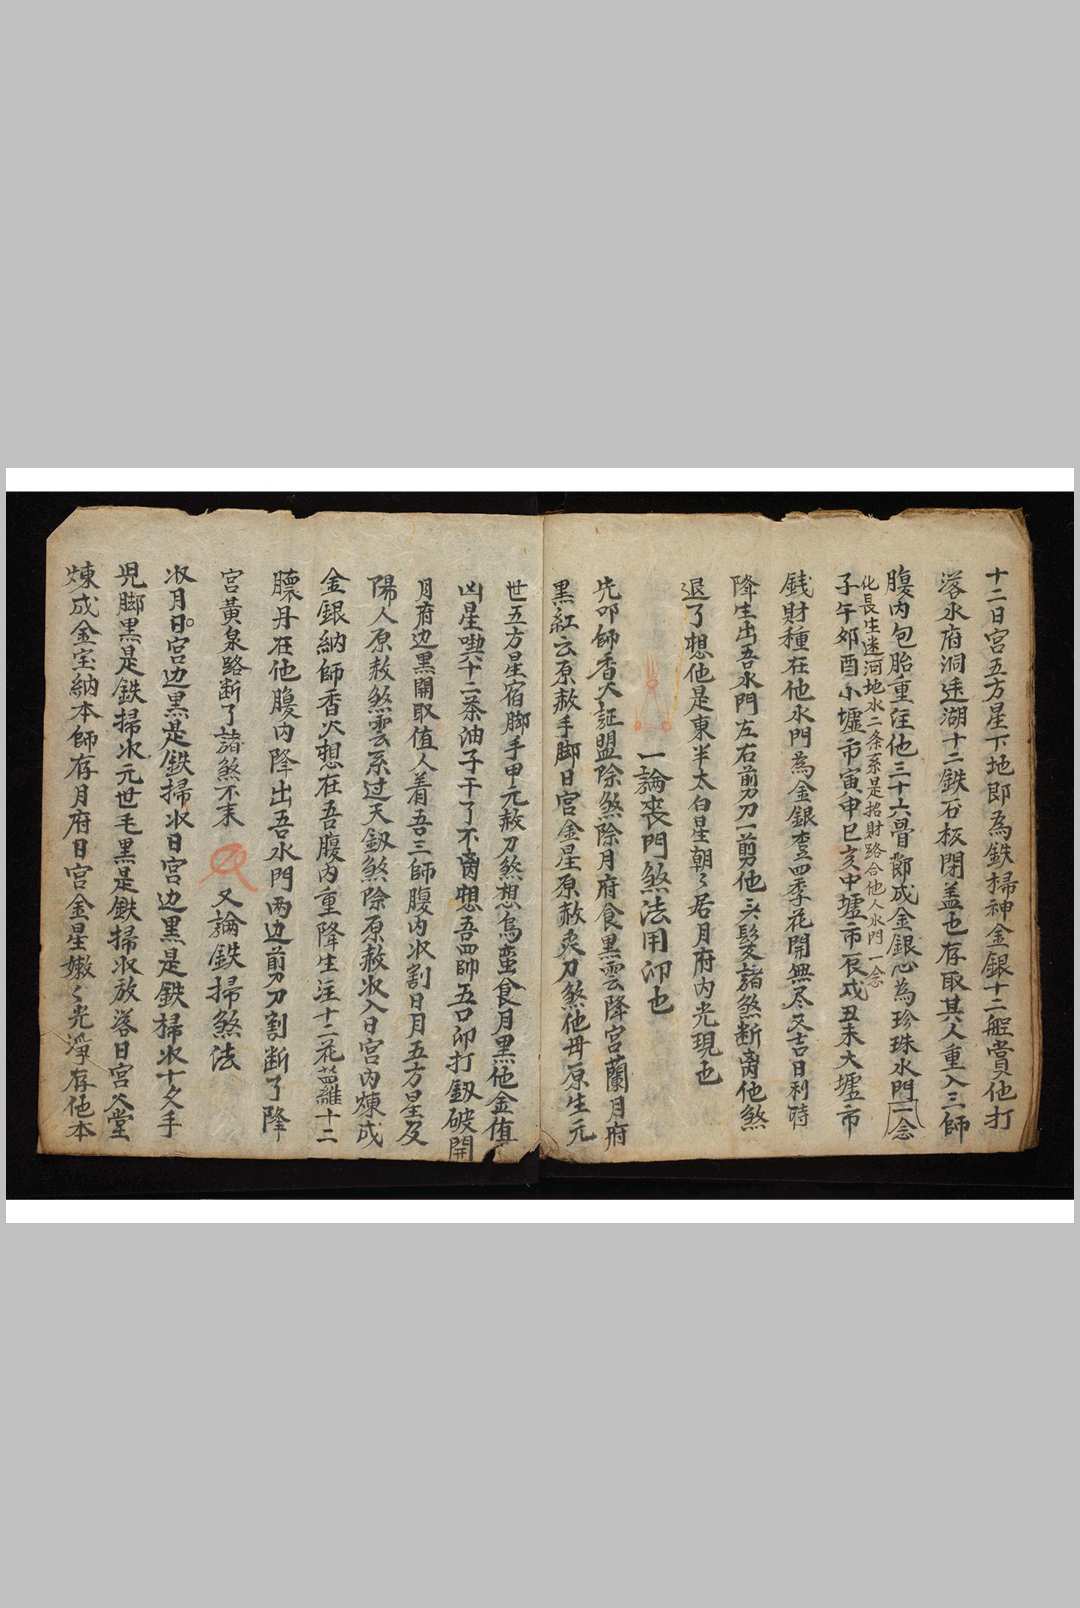 十二日宮五方星下地即為鉄掃神金銀十二般賞他打
落水府洞迷湖十二鉄石板閉盖也存取其人重入三師
腹内包胎重往他三十六骨節成金銀心為珍珠水門一念
化長生迷河地水二条系是招財路合他人水門一念
子午卯酉小墟市寅申巳亥中墟市辰戌丑未大墟市
銭財種在他水門為金銀查四季花開無尽又吉日利時
降生出吾水門左右剪刀一剪他头髮諸煞断离他煞
退了想他是東半太白星朝〻居月府内光現也
一論丧門煞法用印也
先叩師香火証盟除煞除月府食黒雲降宮蘭月府
黒紅云原赦手脚日宮金星原赦炎刀煞他母原生元
世五方星宿脚手甲元赦刀煞想烏蛮食月黒他金值
凶星喫十二茶油子干了不离想吾四帥五口印打釼破開
月府边黒開取值人着吾三師腹内收割日月五方星及
陽人原赦煞雲系过天釼煞除原赦收入日宮内煉成
金銀納師香火想在吾腹内重降生注十二花蓝羅十二
膿丹在他腹内降出吾水門両边剪刀割断了降
宮黃泉路断了諸煞不来 又論鉄掃煞法
收月日宮边黒是鉄掃收日宮边黒是鉄掃收十夕手
児脚黒是鉄掃收元世毛黒是鉄掃收放落日宮火堂
煉成金宝納本師存月府日宮金星嫩〻光淨存他本